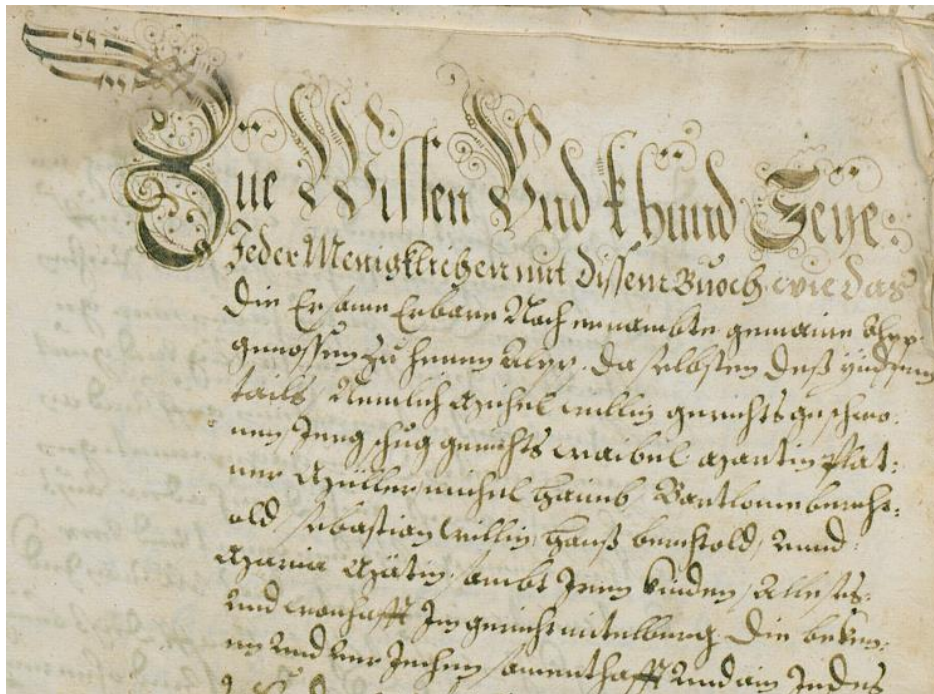 Zue Wissen Vnd khund Seye:
Jeder Menigklichen mit dissem Buoch, wie das
die Ersame Erbare Nach ernambte gemaine Alpp
genossen zu Alpp. daselbsten deß
tails Nemlich Michel willin gerichts geschwo:
nen Jerg schug gerichts waibel. Martin Plat:
ner Müller michel Bartlome bercht:
old, sebastian willin, hanß berchtold, Unnd
Maria sambt Jren kinden, Alle
und wonhafft Jm gericht mitelberg. die beken:
nen und ver Jechen samenthafft und ain Jedes